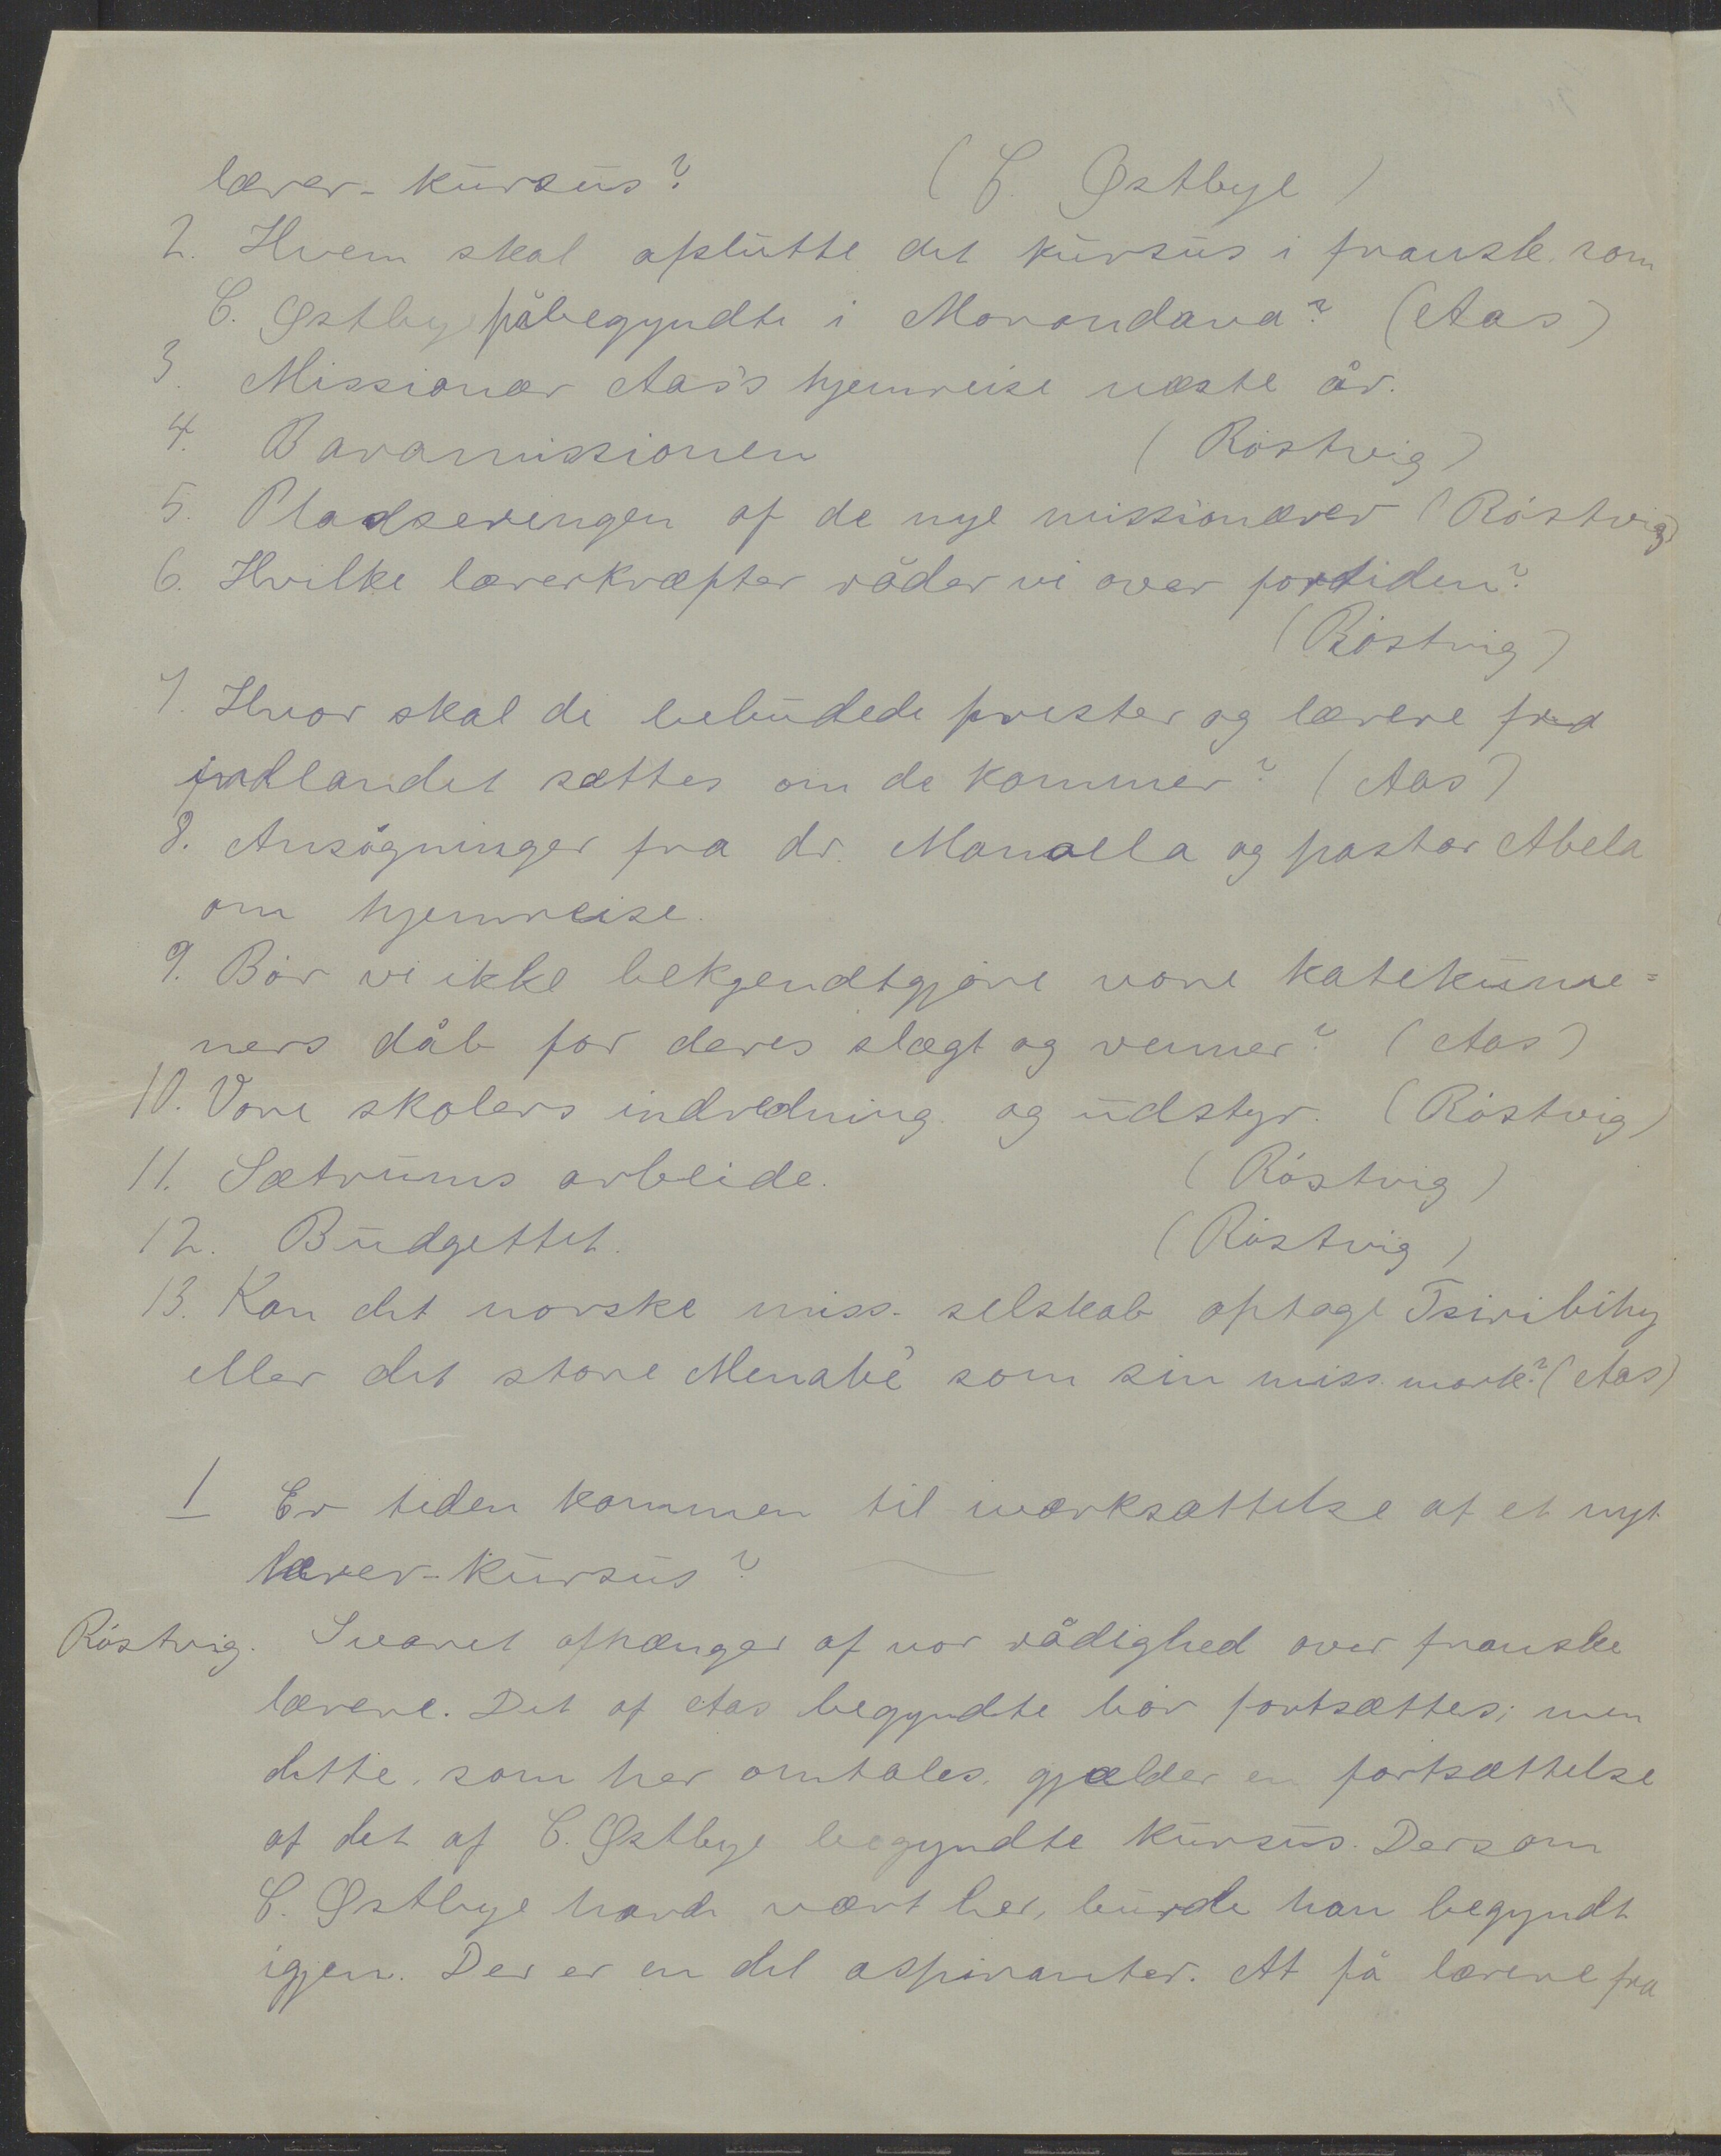 lærer-kursus? (C. Østbye)
2. Hvem skal afslutte det kursus i fransk som
C. Østbye påbegyndte i Morondava? (Aas)
3. Missionær Aas's hjemreise næste år.
4. Baramissionen (Röstvig)
5. Pladseringen af de nye missionærer (Röstvig)
6. Hvilke lærerkræfter råder vi over fortiden?
(Röstvig)
7. Hvor skal de bebudede prester og lærere fra
indlandet sættes om de kommer? (Aas)
8. Ansögninger fra dr. Manaella og pastor Abela
om hjemreise.
9. Bör vi ikke bekgendtgjöre vore katekume=
ners dåb for deres slægt og venner? (Aas)
10. Vore skolers indredning og udstyr. (Röstvig)
11. Sætrums arbeide. (Röstvig)
12. Budgettet. (Röstvig)
13. Kan det norske miss. selskab optage Tsiribihy
eller det store Menabé som sin miss. mark? (Aas)
1 Er tiden kommen til iværksættelse af et nyt
lærer-kursus?
Röstvig. Svaret afhænger af vor rådighed over franske
lærere. Det af Aas begyndte bör fortsættes; men
dette, som her omtales, gjælder en fortsættelse
af det af C. Østbye begyndte kursus. Dersom
C. Østbye havde vært her, burde han begyndt
igjen. Der er en del aspiranter. At få lærere fra